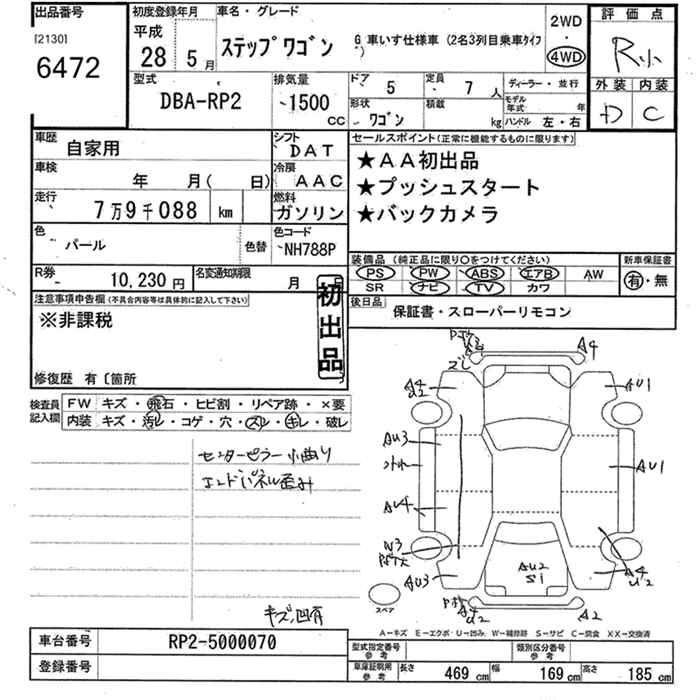 出品番号
[2130]
6472
初度登録年月
平成
28 5月
車名・グレード
ステップワゴン
G 車いす仕様車 (2名3列目乗車タイプ)
2WD
・
4WD
評価点
R
外装 内装
D C
型式
DBA-RP2
排気量
1500
CC
ドア 5
定員 7 人
形状 ワゴン
積載 kg
ディーラー・並行
モデル年式 年
ハンドル 左・右
車歴 自家用
シフト DAT
車検 年 月( 日)
冷房 AAC
走行 7万9千088 km
燃料 ガソリン
色 パール
色替
色コード NH788P
R券 10,230円
名変通知期限 月 日
セールスポイント(正常に機能するものに限ります)
★AA初出品
★プッシュスタート
★バックカメラ
装備品(純正品に限り○をつけてください)
PS PW ABS エアB AW
SR ナビ TV カワ
新車保証書
有・無
後日品
保証書・スローパーリモコン
注意事項申告欄(不具合内容等は具体的に記入して下さい)
※非課税
初出品
修復歴 有〔箇所 〕
検査員記入欄
FW キズ・飛石・ヒビ割・リペア跡・×要
内装 キズ・汚レ・コゲ・穴・スレ・キレ・破レ
センターピラー小曲り
エンドパネル歪み
キズ凹有
A4
A4
AU1
AU3
AU1
AU4
W3
AU3
AU2
S1
A4
U2
A2
スペア
A－キズ E－エクボ・U－凹み W－補修跡 S－サビ C－腐食 XX－交換済
車台番号 RP2-5000070
登録番号
型式指定番号
参考
類別区分番号
参考
車庫証明用
参考
長さ 469 cm 幅 169 cm 高さ 185 cm